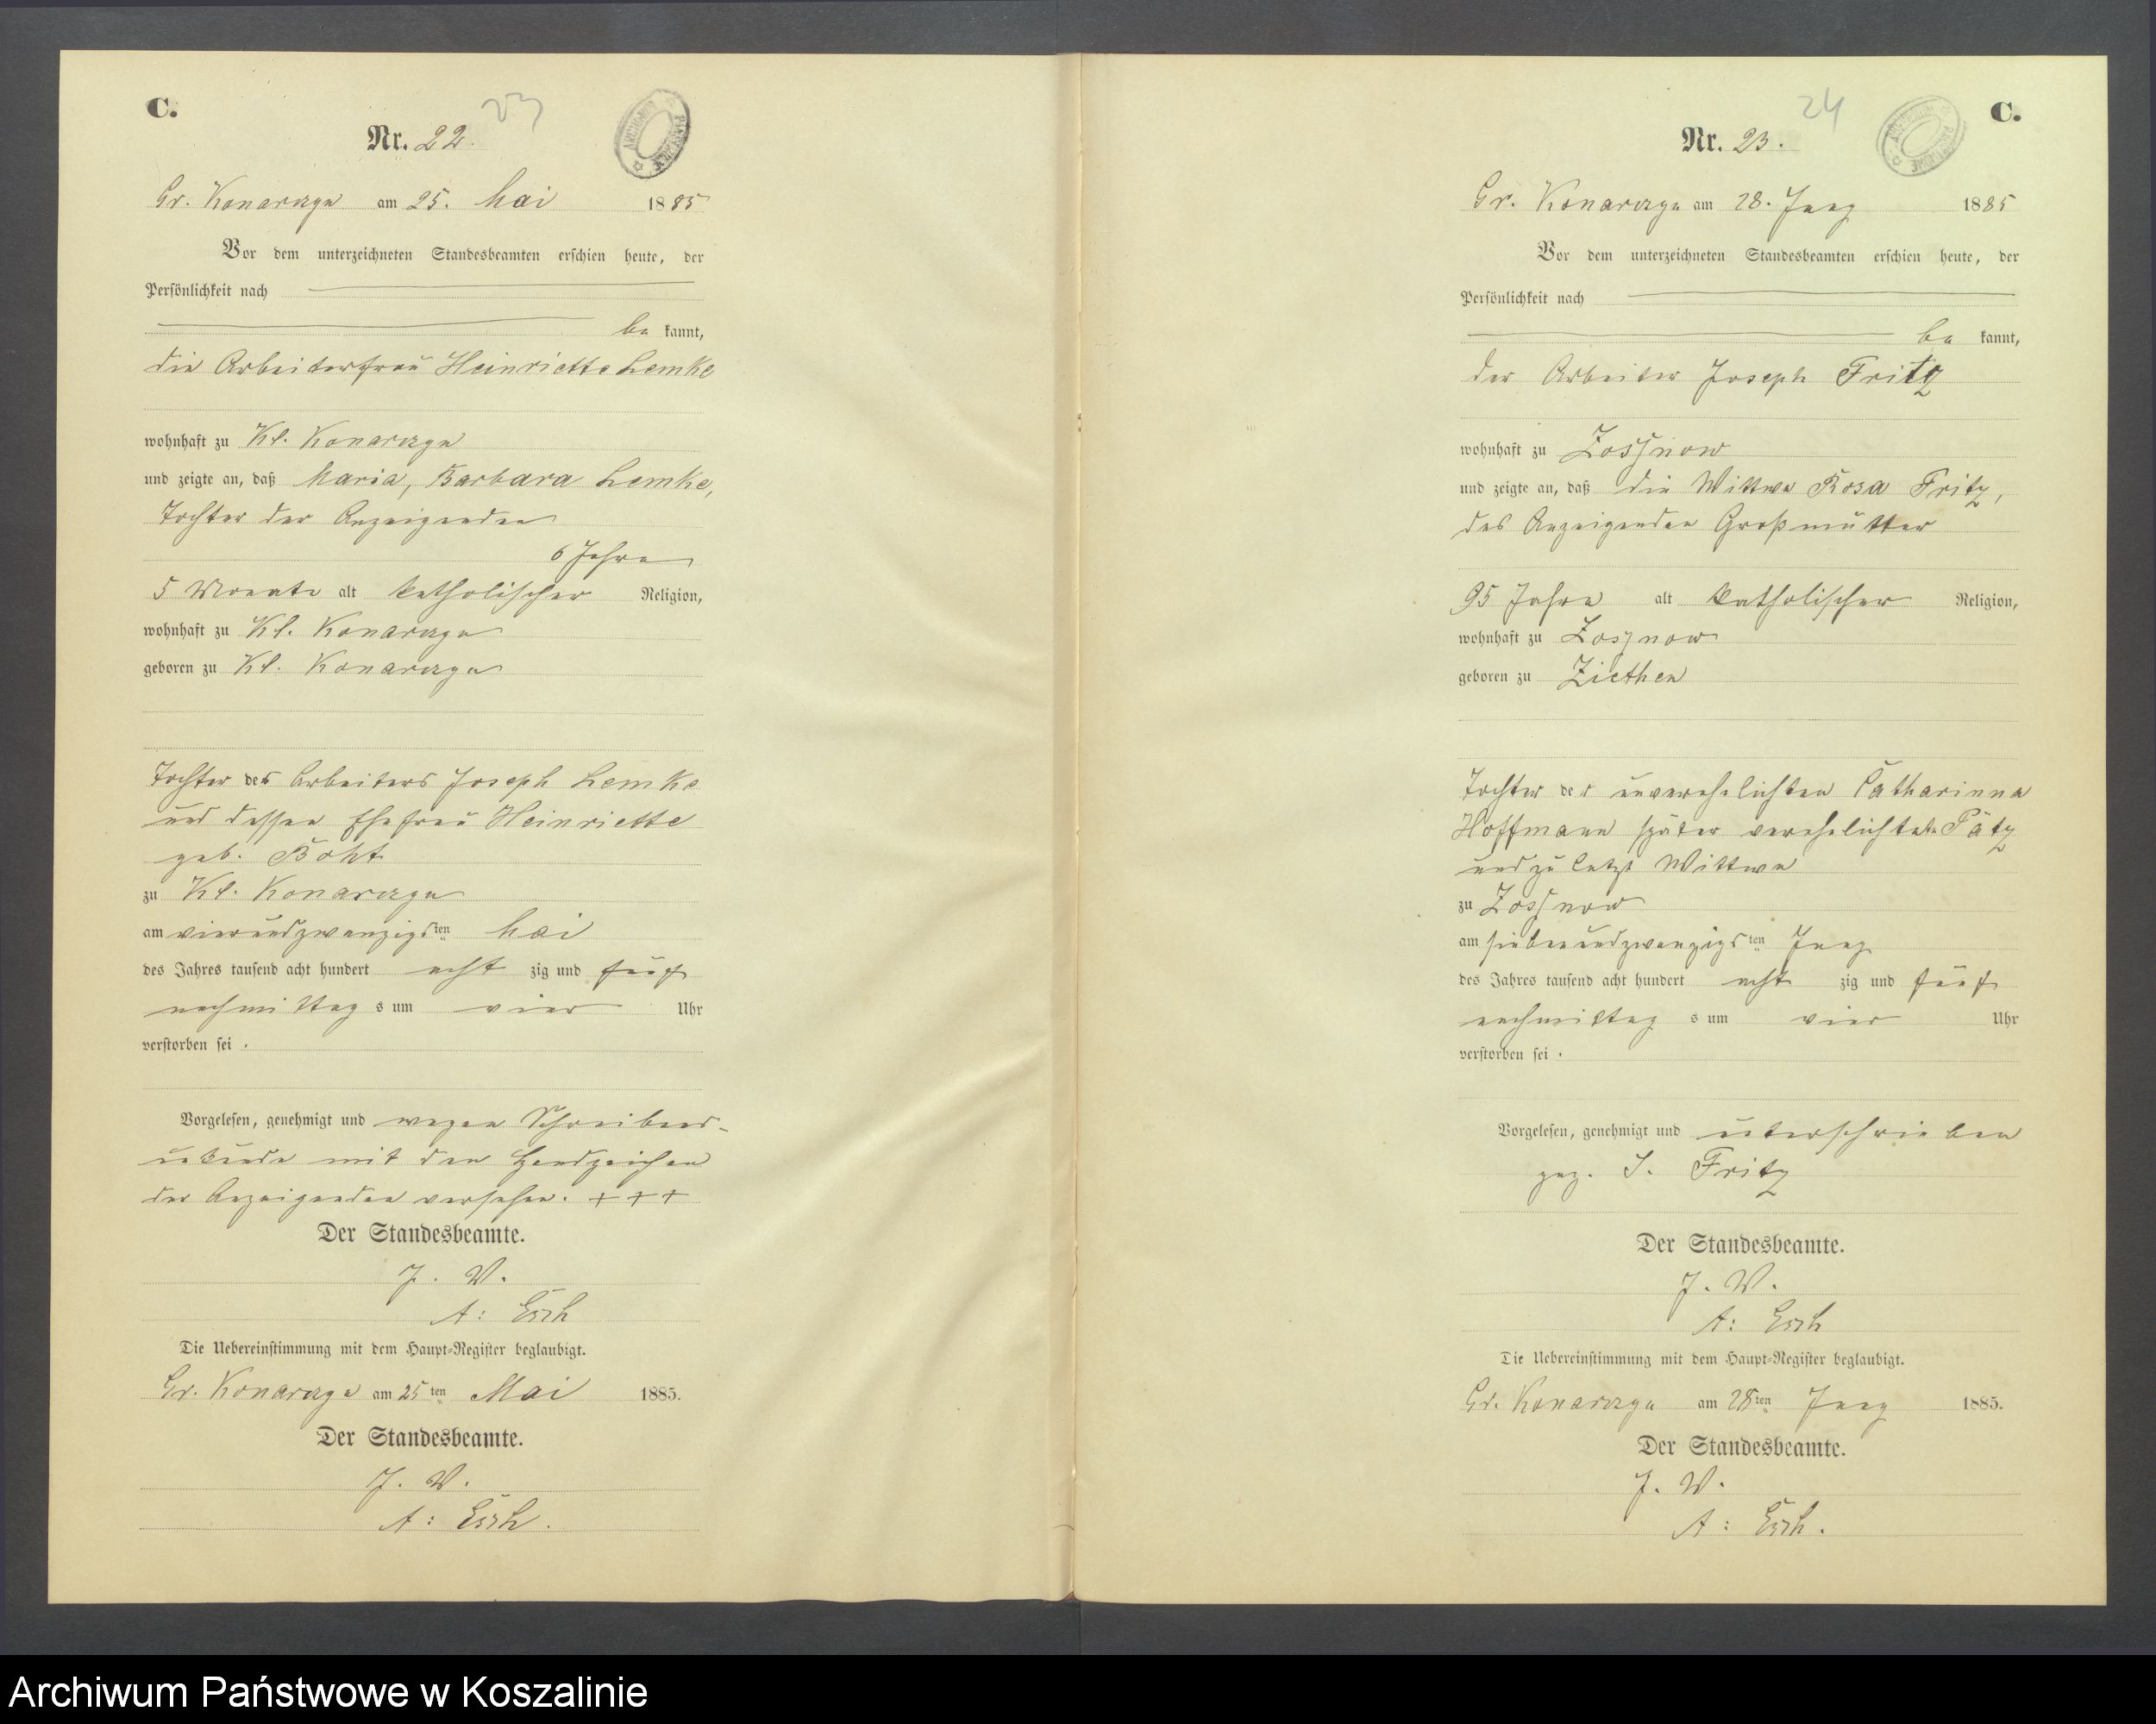 C.
23
Nr. 22.
Gr. Konarczyn am 25. Mai 1885
Vor dem unterzeichneten Standesbeamten erschien heute, der
Persönlichkeit nach
be kannt,
die Arbeiterfrau Heinriette Lemke
wohnhaft zu Kl. Konarczyn
und zeigte an, daß Maria, Barbara Lemke,
Tochter der Anzeigenden
6 Jahre
5 Monate alt katholischer Religion,
wohnhaft zu Kl. Konarczyn
geboren zu Kl. Konarczyn
Tochter des Arbeiters Joseph Lemke
und dessen Ehefrau Heinriette
geb.
zu Kl. Konarczyn
am vierundzwanzigsten Mai
des Jahres tausend acht hundert acht zig und fünf
nachmittag s um vier Uhr
verstorben sei.
Vorgelesen, genehmigt und wegen Schreibens-
unkunde mit den Handzeichen
der Anzeigenden versehen. +++
Der Standesbeamte.
J. V.
A:
Die Uebereinstimmung mit dem Haupt-Register beglaubigt.
Gr. Konarczyn am 25ten Mai 1885.
Der Standesbeamte.
J. V.
A:
24
C.
Nr. 23.
Gr. Konarczyn am 28. Juny 1885
Vor dem unterzeichneten Standesbeamten erschien heute, der
Persönlichkeit nach
be kannt,
der Arbeiter Joseph Fritz
wohnhaft zu Zossnow
und zeigte an, daß die Wittwe Rosa Fritz,
des Anzeigenden Großmutter
95 Jahre alt katholischer Religion,
wohnhaft zu Zossnow
geboren zu Ziethen
Tochter der unverehelichten Catharinna
Hoffmann später verehelichte Pätz
und zuletzt Wittwe
zu Zossnow
am siebenundzwanzigsten Juny
des Jahres tausend acht hundert acht zig und fünf
nachmittag s um vier Uhr
verstorben sei.
Vorgelesen, genehmigt und unterschrieben
gez. J. Fritz
Der Standesbeamte.
J. V.
A:
Die Uebereinstimmung mit dem Haupt-Register beglaubigt.
Gr. Konarczyn am 28ten Juny 1885.
Der Standesbeamte.
J. V.
A:
Archiwum Państwowe w Koszalinie